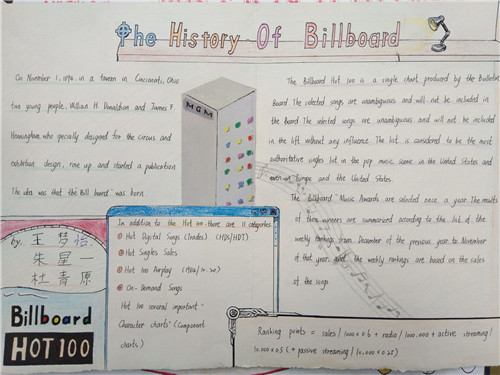 The History Of Billboard
On November 1, 1894, in a tavern in Cincinnati, Ohio
two young people, William H. Donaldson and James F.
Henningham, who specially designed for the circus and
exhibition design, rove up and started a publication
The idea was that the "Bill board" was born
MGM
The Billboard Hot 100 is a single chart produced by the Bulletin
Board. The selected songs are unambiguous and will not be included in
the Board. The selected songs are unambiguous and will not be included
in the lift without any influence. The list is considered to be the most
authoritative singles list in the pop music scene in the United States and
even in Europe and the United States.
The Billboard Music Awards are selected once a year. The results of
these winners are summarized according to the list of the
weekly rankings from December of the previous year to November
of that year, and the weekly rankings are based on the sales
of the songs
by. 王梦悟
朱星一
杜青原
Billboard
HOT 100
In addition to the Hot 100, there are 11 categories
Hot Digital Songs (Trades) (HDS/HDT)
Hot Singles Sales
Hot 100 Airplay
On-Demand Songs
Hot 100 several important
Character charts" (Component
charts)
Ranking points = sales / 1000 × 0.6 + radio / 1000.000 + active streaming /
10.000 × 0.5 ( + passive streaming / 10.000 × 0.25)